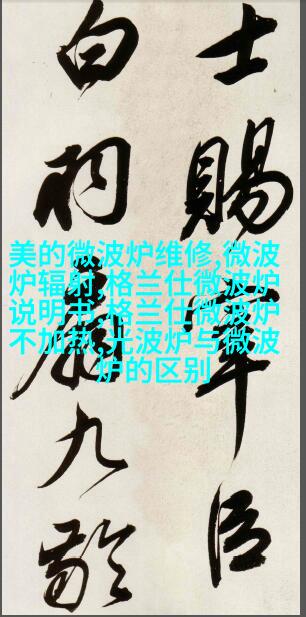 士賜宰臣
白羽扇九齡
美的微波炉维修,微波
炉辐射,格兰仕微波炉
说明书,格兰仕微波炉
不加热,光波炉与微波
炉的区别